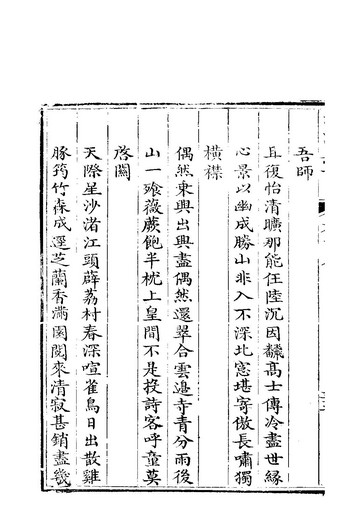 吾師
且復怡清曠那能任陸沉因飜高士傳冷盡世緣
心景以幽成勝山非入不深北窓堪寄傲長嘯獨
橫襟
偶然乘興出興盡偶然還翠合雲邉寺青分雨後
山一飧薇蕨飽半枕上皇間不是投詩客呼童莫
啓關
天際星沙渚江頭薜荔村春深喧雀鳥日出散雞
豚筠竹森成逕芝蘭香滿園閱來清寂甚銷盡幾